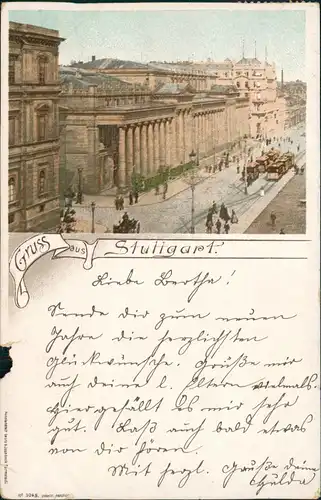 Gruss
aus
Stuttgart.
Liebe Bertha!
Sende dir zum neuen
Jahre die herzlichsten
Glückwünsche. Grüße mir
auch deine l. Eltern vielmals.
Hier gefällt es mir sehr
gut. Laß auch bald etwas
von dir hören.
Mit herzl. Gruße deine
Hulda